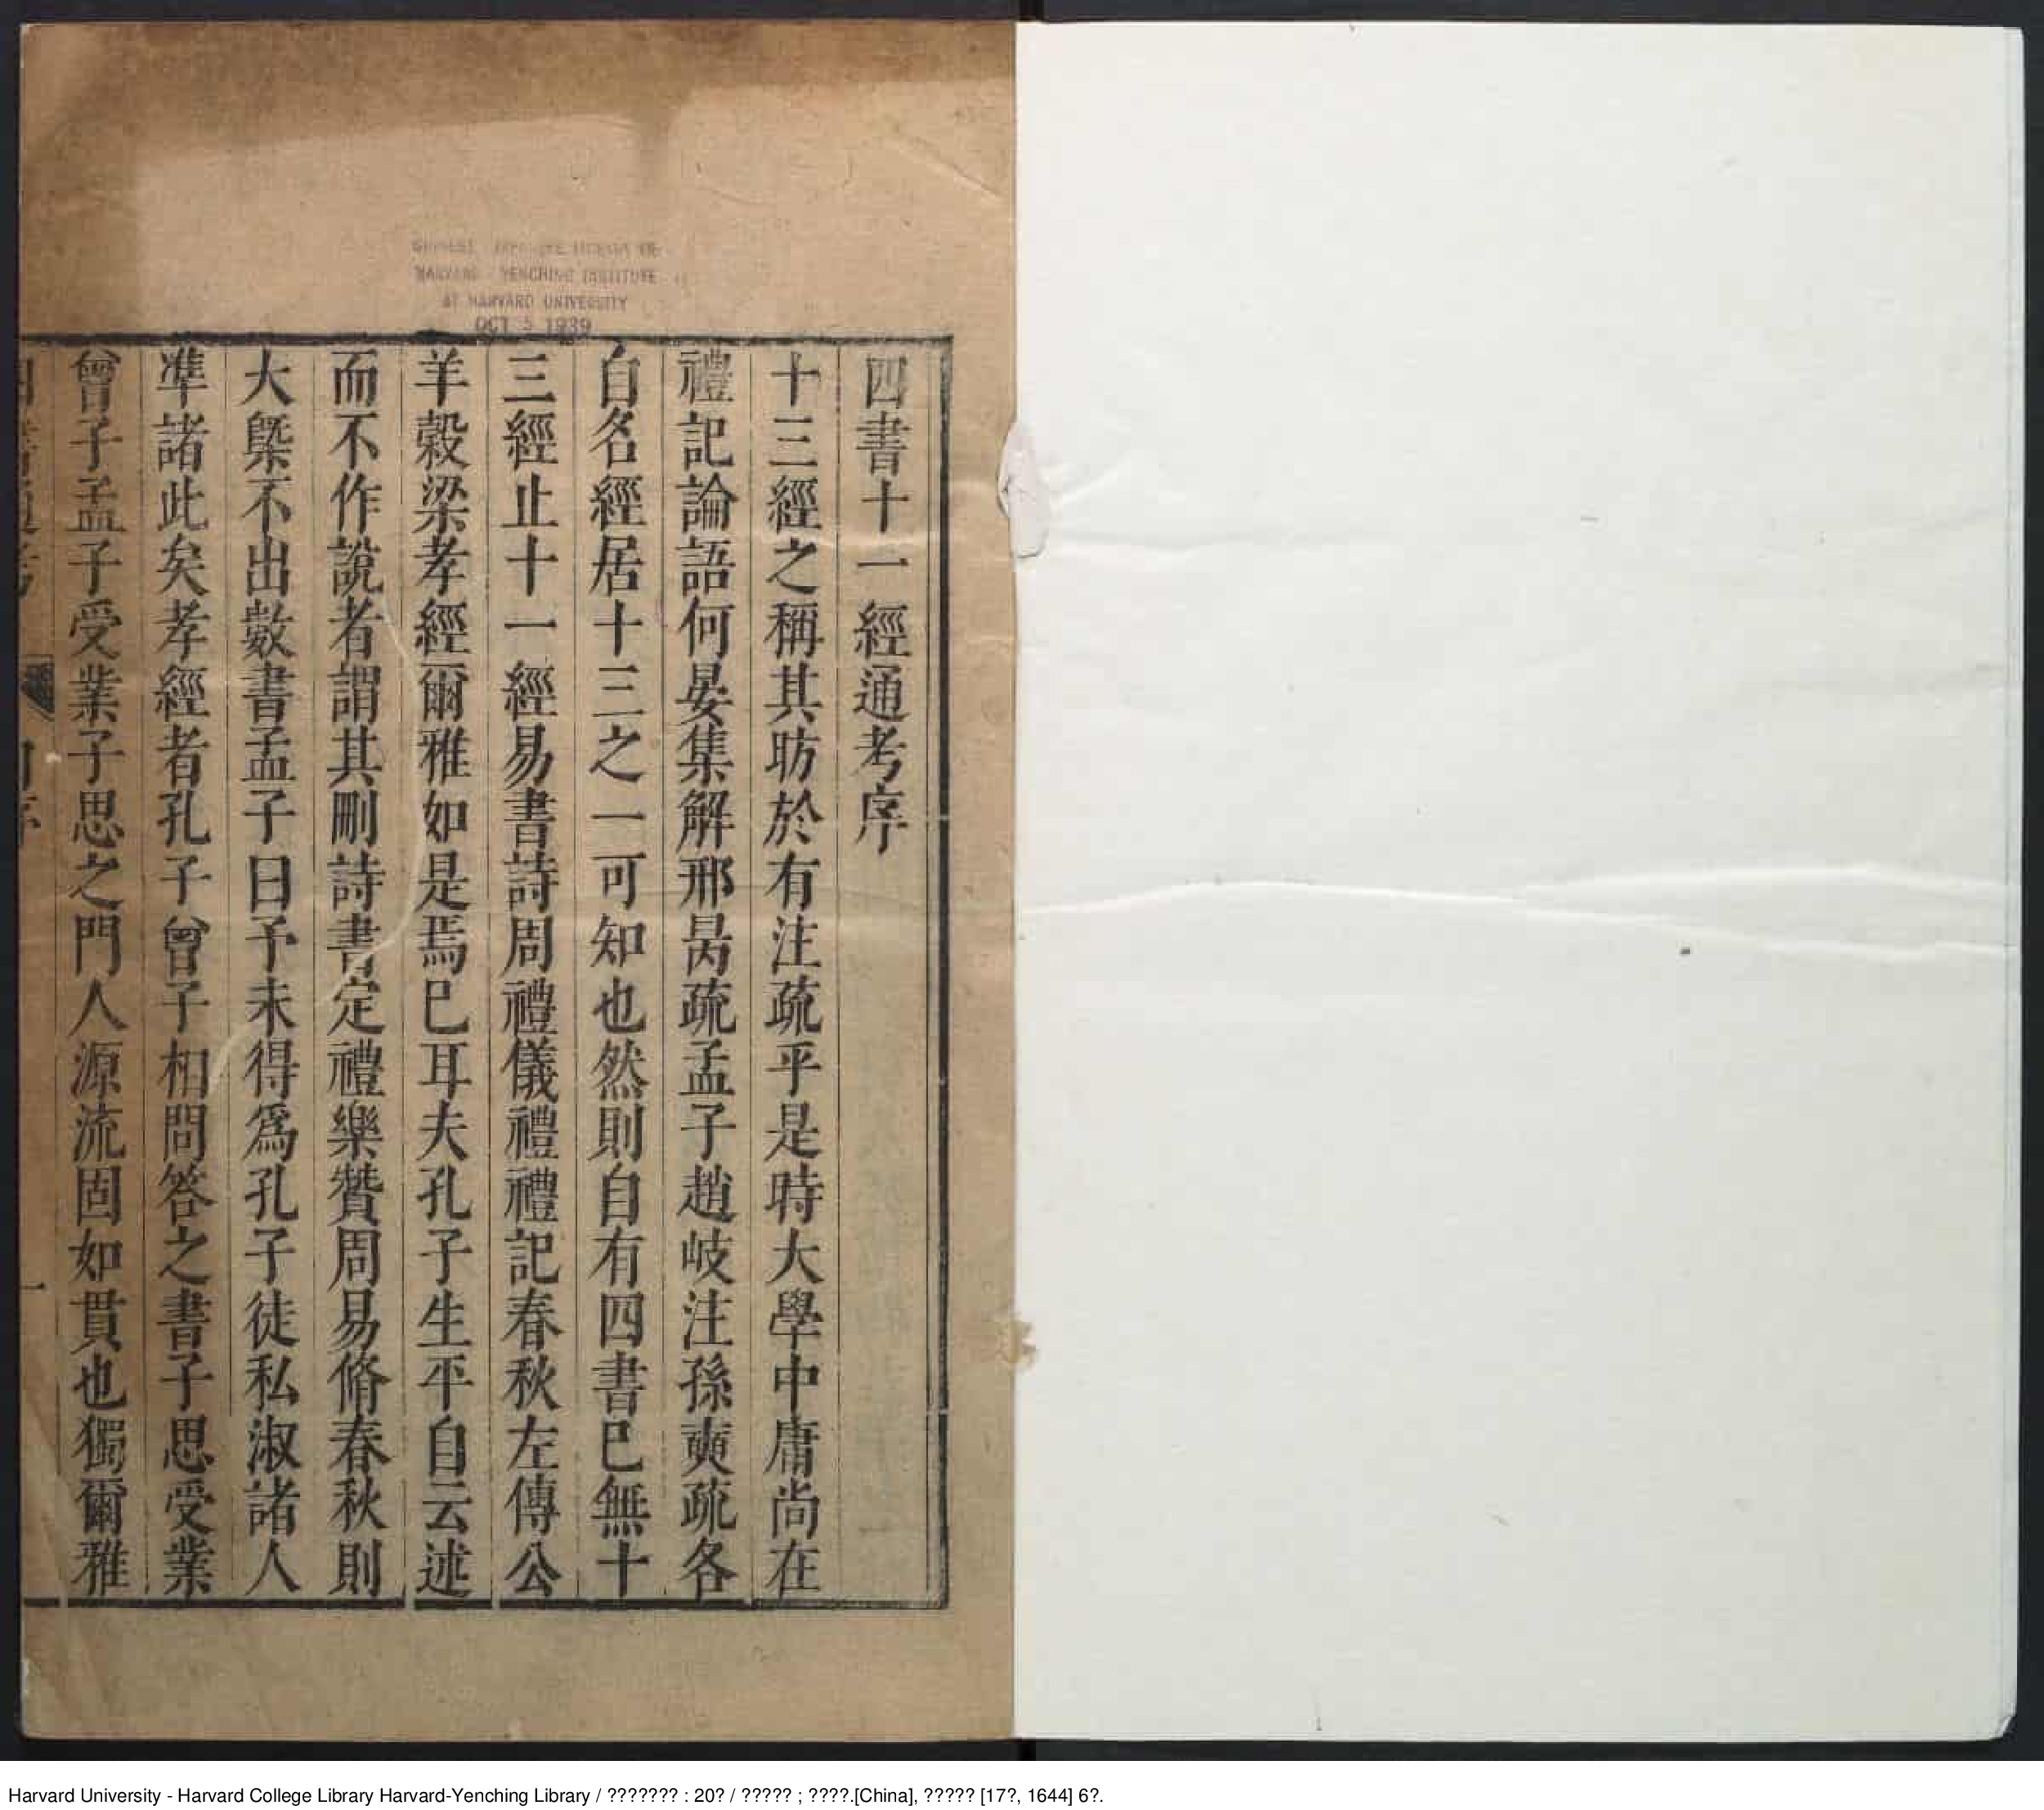 四書十一經通考序
十三經之稱其昉於有注疏乎是時大學中庸尚在
禮記論語何晏集解邢昺疏孟子趙岐注孫奭疏各
自名經居十三之一可知也然則自有四書巳無十
三經止十一經易書詩周禮儀禮禮記春秋左傳公
羊榖梁孝經爾雅如是焉巳耳夫孔子生平自云述
而不作說者謂其刪詩書定禮樂贊周易脩春秋則
大槩不出數書孟子曰予未得爲孔子徒私淑諸人
準諸此矣孝經者孔子曾子相問答之書子思受業
曾子孟子受業子思之門人源流固如貫也獨爾雅
一
HARVARD YENCHING INSTITUTE
AT HARVARD UNIVERSITY
OCT 5 1939
Harvard University - Harvard College Library Harvard-Yenching Library / ??????? : 20? / ????? ; ????.[China], ????? [17?, 1644] 6?.